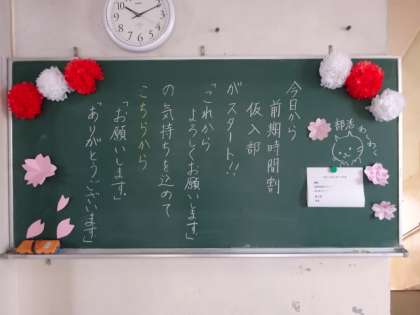 今日から
前期時間割
仮入部
がスタート!!
「これから
よろしくお願いします」
の気持ちを込めて
こちらから
「お願いします」
「ありがとうございます」
部活
わくわく